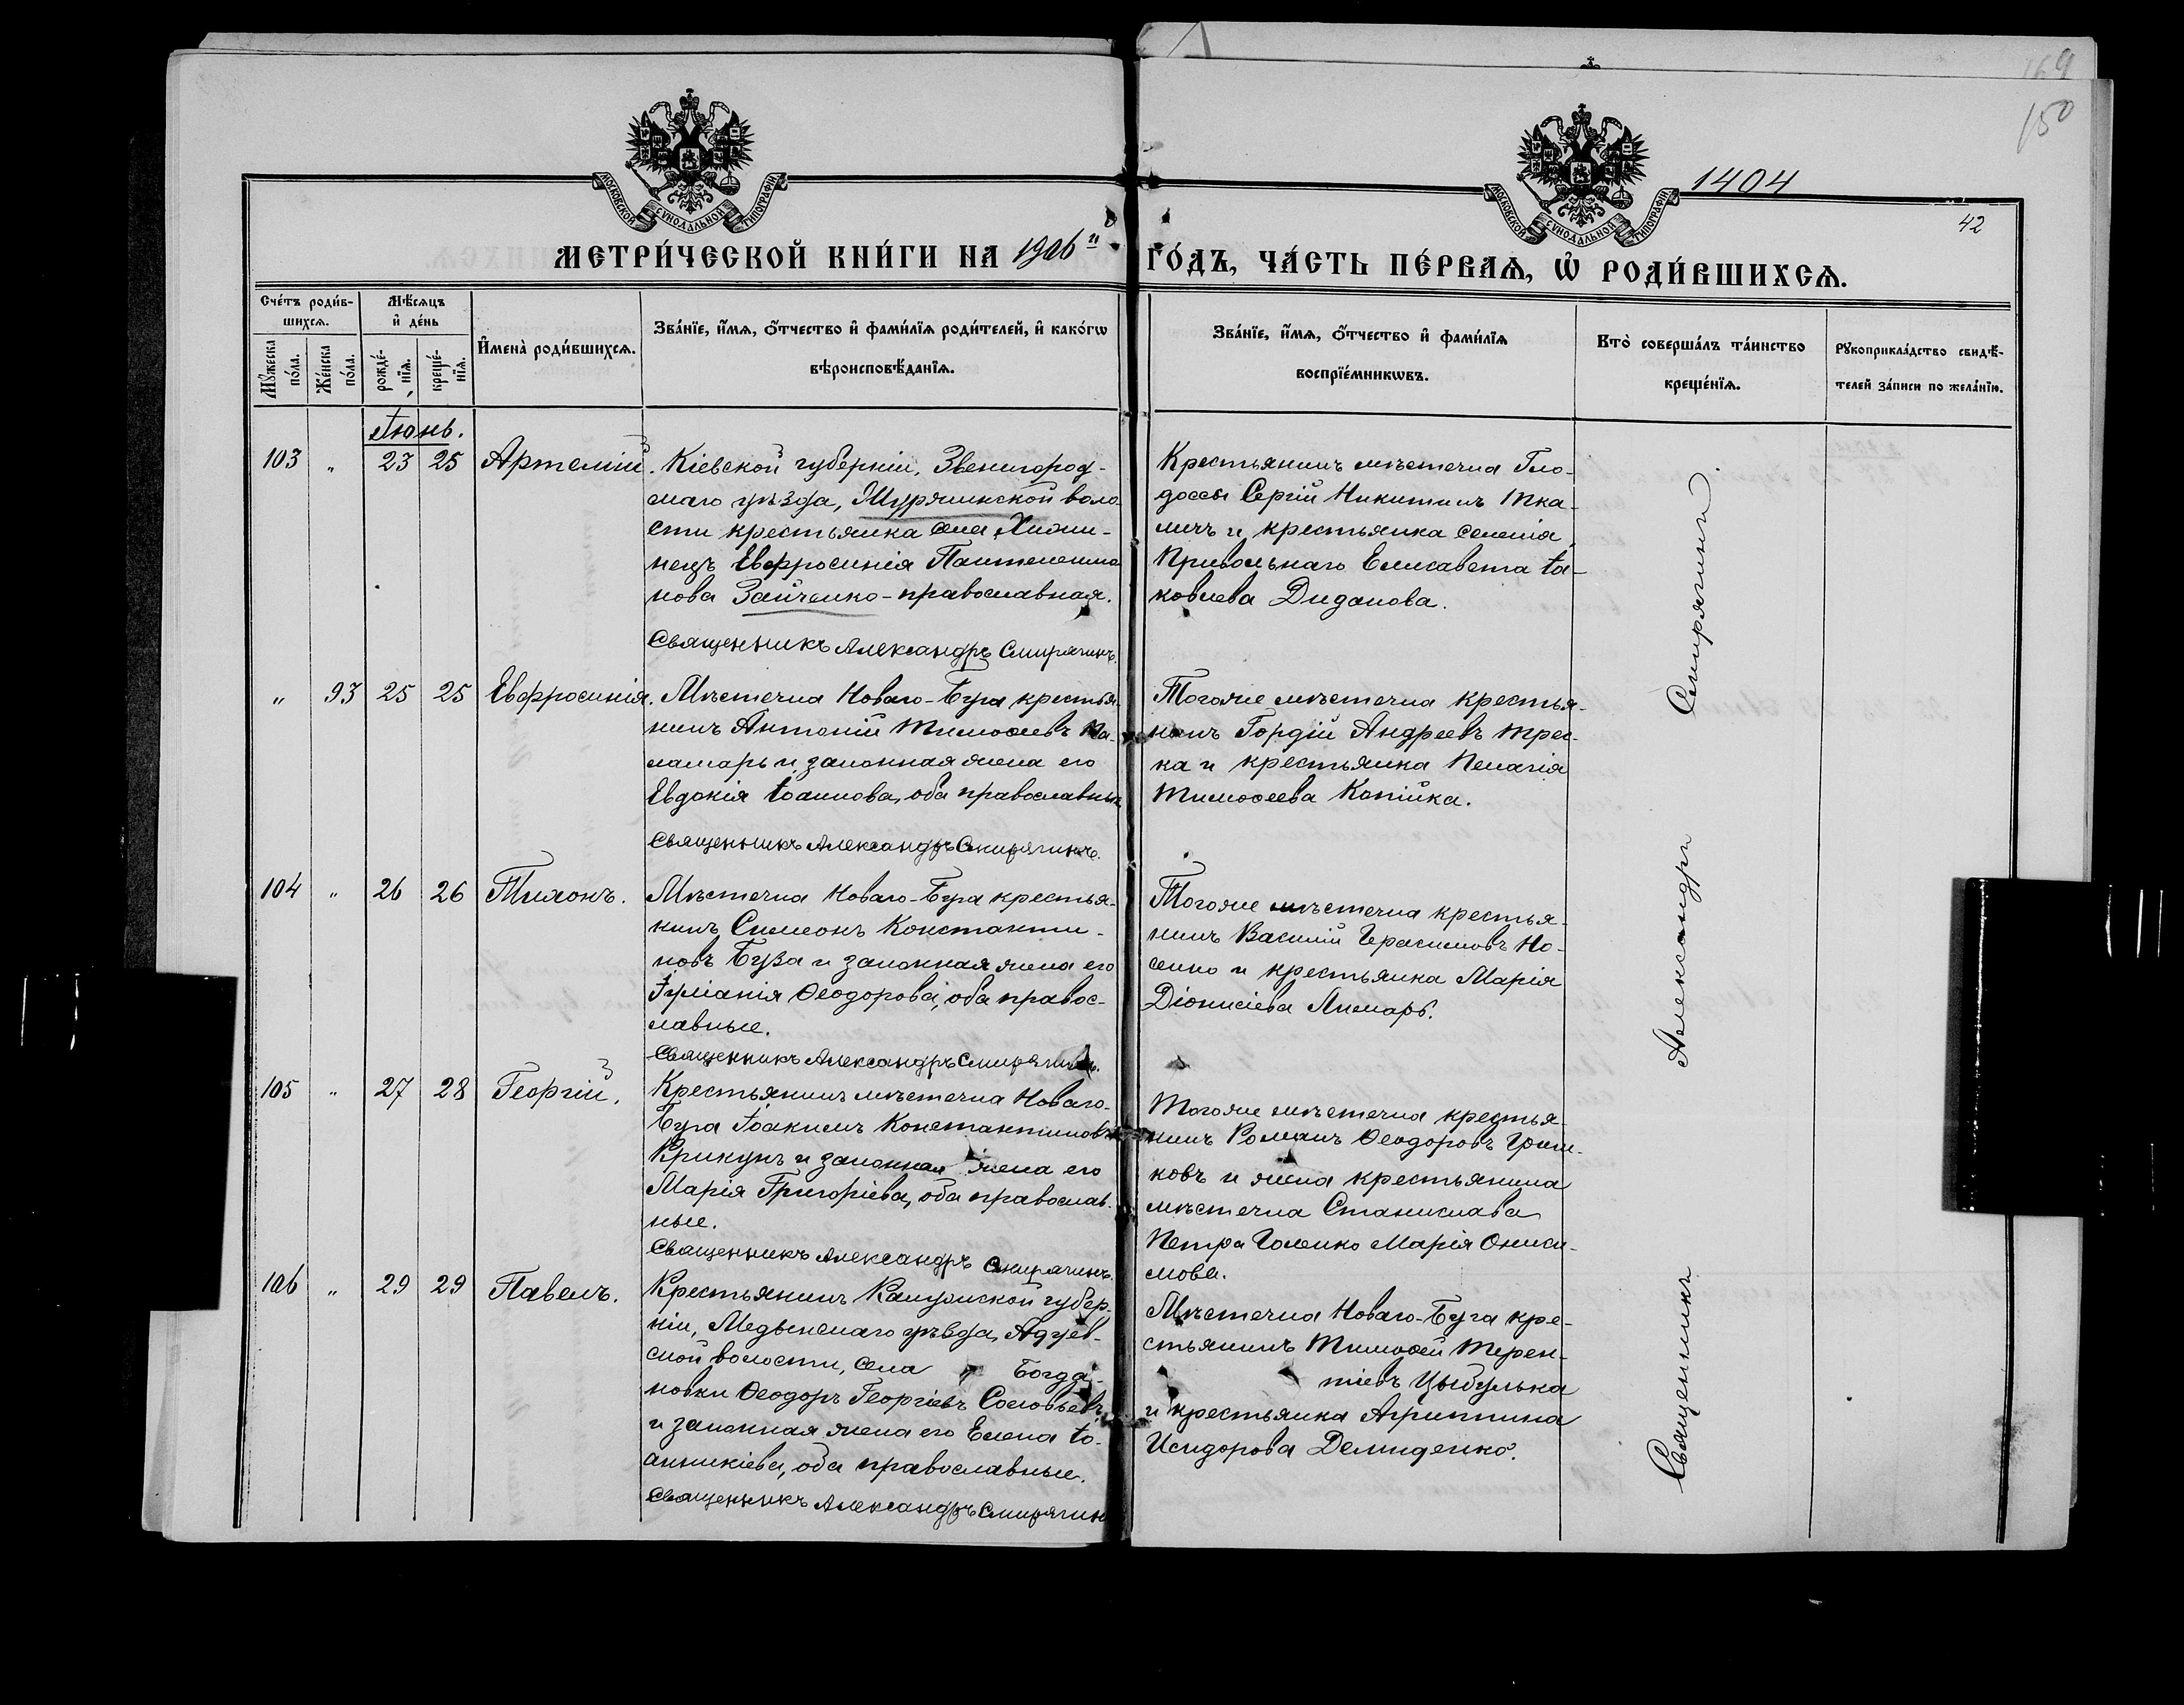 169
150
1404
42
МОСКОВСКОЙ СѴНОДАЛЬНОЙ ТИПОГРАФІИ
МОСКОВСКОЙ СѴНОДАЛЬНОЙ ТИПОГРАФІИ
МЕТРИ́ЧЕСКОЙ КНИ́ГИ НА 1906й ГО́ДЪ, ЧА́СТЬ ПЕ́РВАѦ, Ѡ҆ РОДИ́ВШИХСѦ.
Сче́тъ роди́в-
шихсѧ.
Мѣ́сѧцъ
и҆ де́нь
Мꙋ́жеска
по́ла.
Же́нска
по́ла.
рожде́-
нїѧ.
креще́-
нїѧ.
И҆мена̀ роди́вшихсѧ.
Зва́нїе, и҆́мѧ, ѻ҆́тчество и҆ фами́лїѧ роди́телей, и҆ како́гѡ
вѣроисповѣ́данїѧ.
Зва́нїе, и҆́мѧ, ѻ҆́тчество и҆ фами́лїѧ
воспрїе́мникѡвъ.
Кто̀ соверша́лъ та́инство
креще́нїѧ.
Рꙋкоприкла́дство свидѣ́-
телей за́писи по жела́нїю.
Іюнь.
103 " 23 25 Артемій.
Кіевской губерніи, Звенигород-
скаго уѣзда, Шурянинской воло-
сти крестьянка села Хижи-
нецъ Евфросинія Пантелеимо
нова Зайченко - православная.
Священникъ Александръ Смирягинъ.
Крестьянинъ мѣстечка Гло-
доссы Сергій Никитинъ Тка-
личъ и крестьянка селенія
Привольнаго Елисавета Іа-
ковлева Диданова.
" 93 25 25 Евфросинія.
Мѣстечка Новаго-Буга крестья-
нинъ Антоній Тимофеевъ Па-
ламарь и законная жена его
Евдокія Іоаннова, оба православные
Священникъ Александръ Смирягинъ.
Тогоже мѣстечка крестья-
нинъ Гордій Андреевъ Трес-
ка и крестьянка Пелагія
Тимофеева Копійка.
104 " 26 26 Тихонъ.
Мѣстечка Новаго-Буга крестья-
нинъ Симеонъ Константи-
новъ Буза и законная жена его
Іуліанія Ѳеодорова, оба правос-
лавные.
Священникъ Александръ Смирягинъ.
Тогоже мѣстечка крестья-
нинъ Василій Герасимовъ Но-
сенко и крестьянка Марія
Діонисіева Лимарь.
105 " 27 28 Георгій.
Крестьянинъ мѣстечка Новаго-
Буга Іоакимъ Константиновъ
Крикунъ и законная жена его
Марія Григоріева, оба православ-
ные.
Священникъ Александръ Смирягинъ.
Тогоже мѣстечка крестья-
нинъ Романъ Ѳеодоровъ Гриш-
ковъ и жена крестьянина
мѣстечка Станислава
Петра Голенко Марія Ониси-
мова.
106 " 29 29 Павелъ.
Крестьянинъ Калужской губер-
ніи, Медынскаго уѣзда, Адуев-
ской волости, села Богда-
новки Ѳеодоръ Георгіевъ Соловьевъ
и законная жена его Елена Іо-
анникіева, оба православные.
Священникъ Александръ Смирягинъ
Мѣстечка Новаго-Буга кре-
стьянинъ Тимофей Терен-
тіевъ Цыбулька
и крестьянка Агриппина
Исидорова Демиденко.
Священникъ Александръ Смирягинъ.